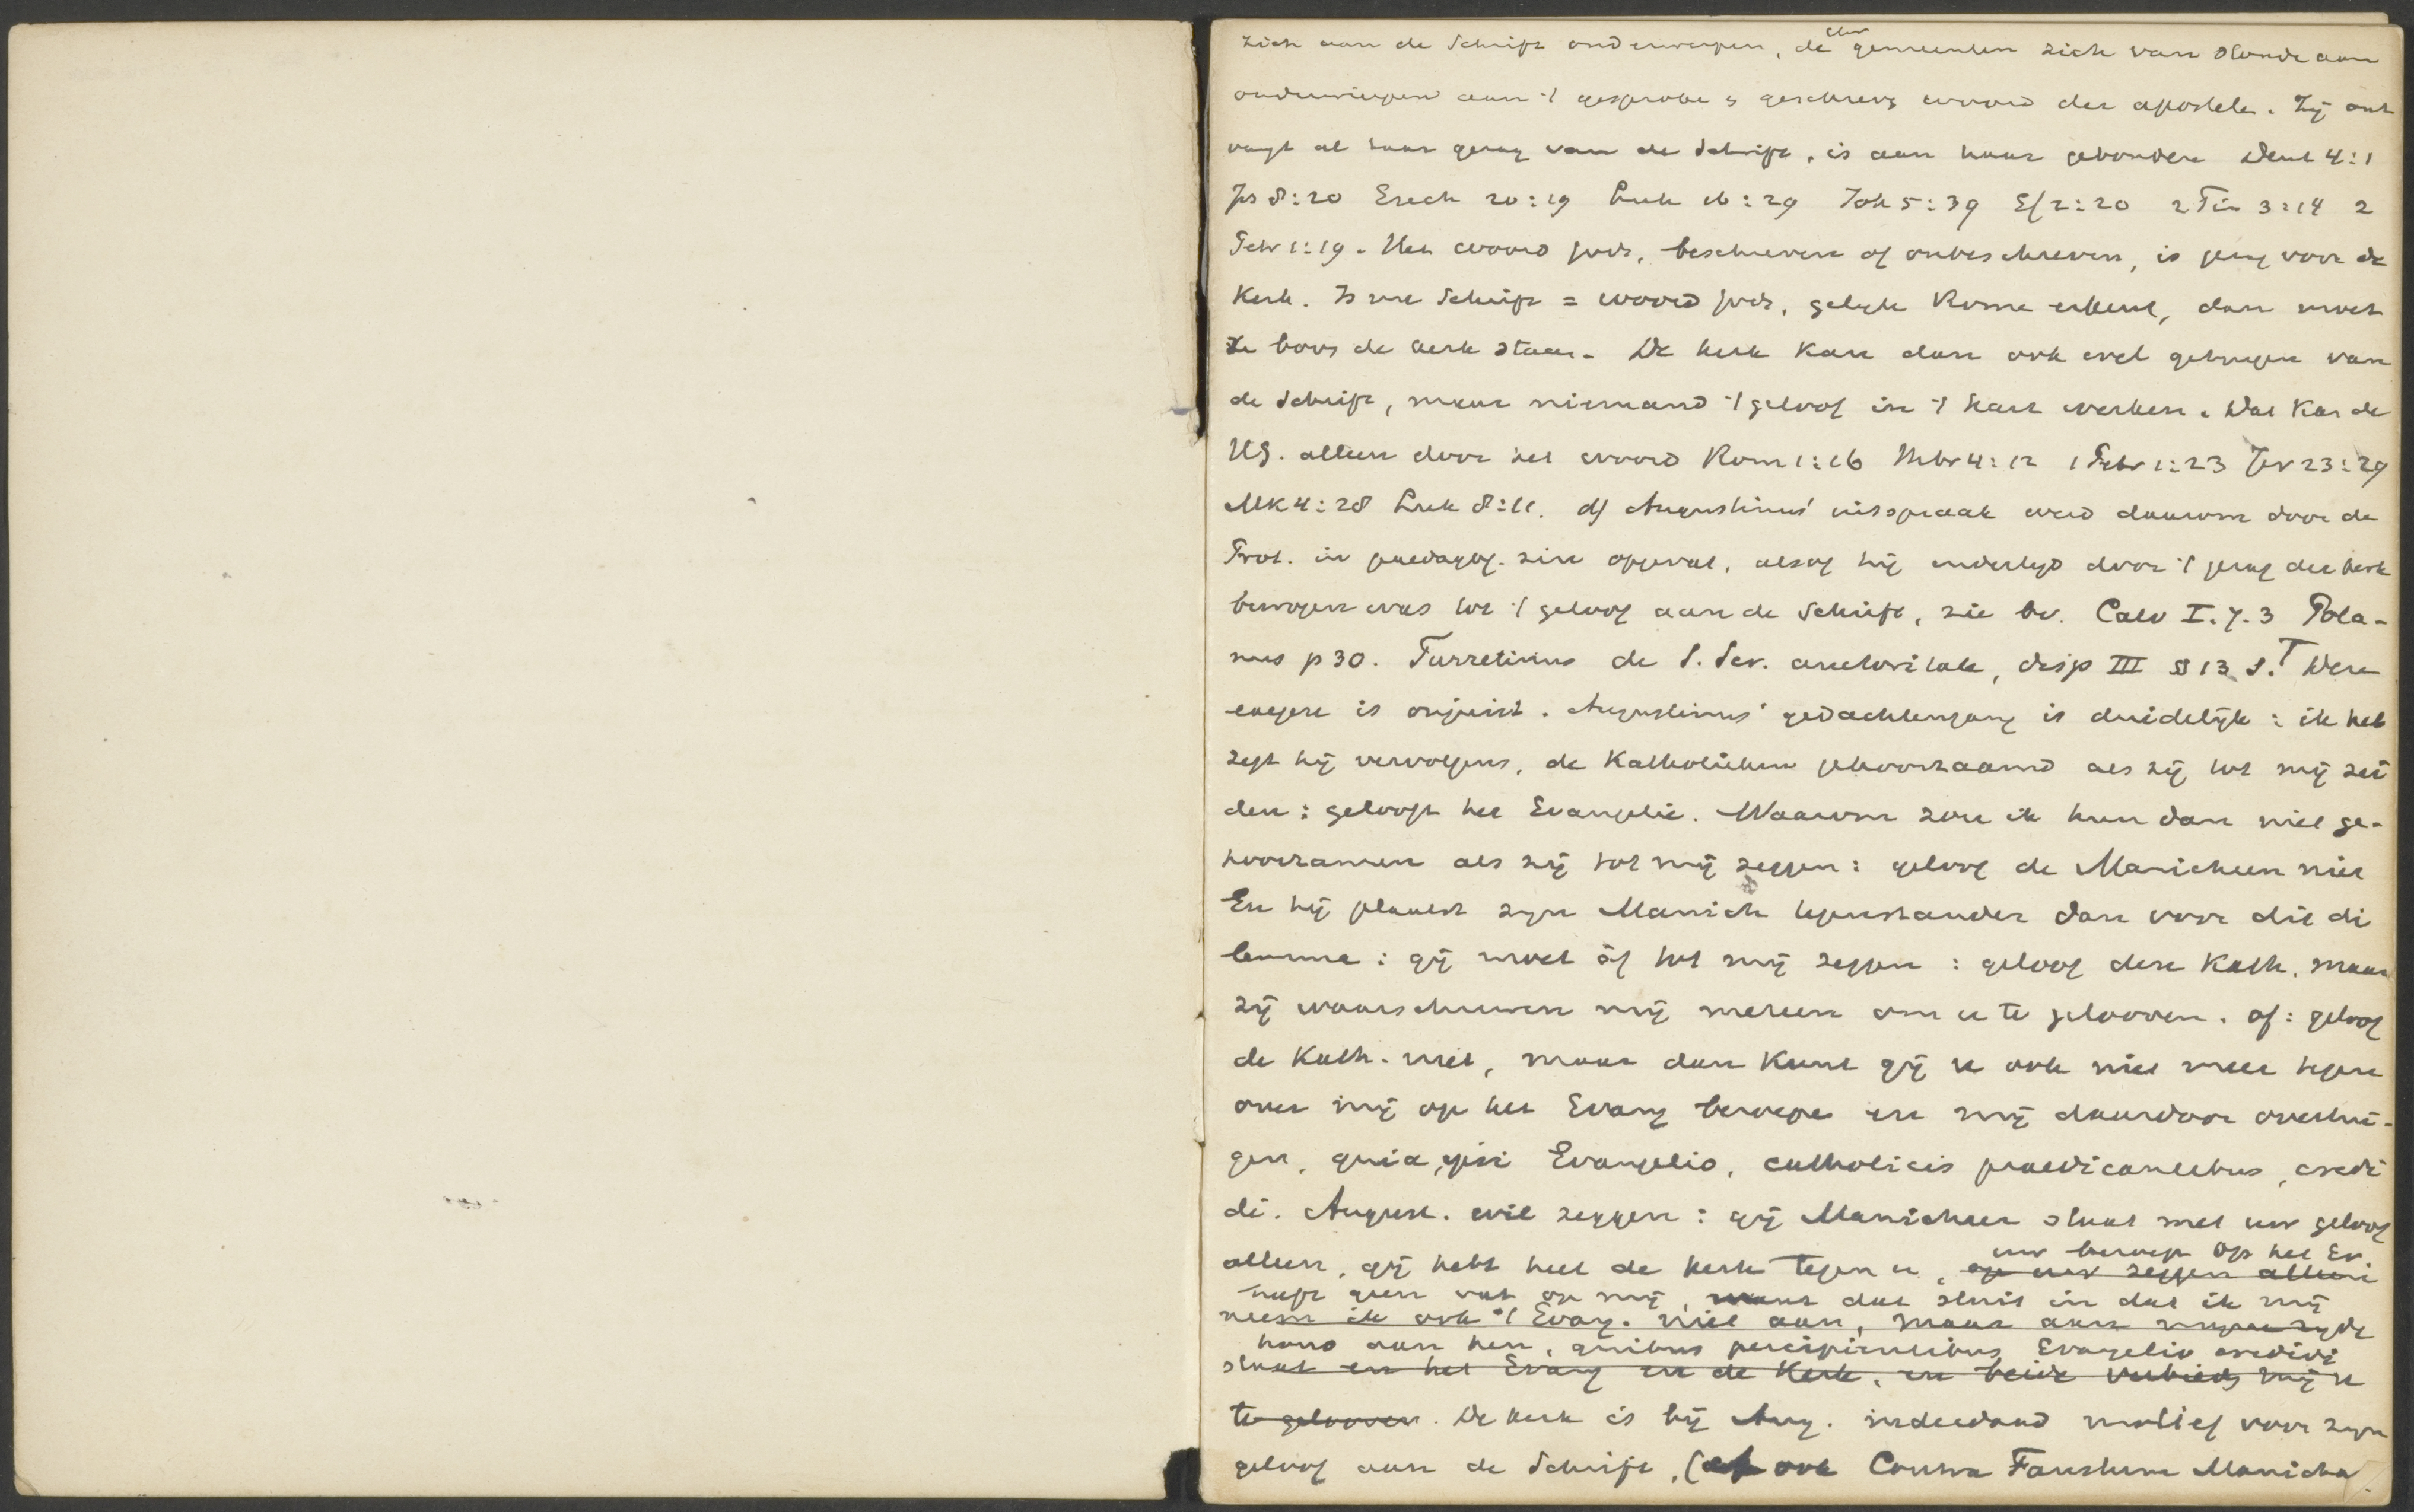 zich aan de Schrift onderwerpen, de chr gemeenten zich van stonde aan
onderwierpen aan 't gesproke & geschrev woord der apostelen. Zij ont
vangt al haar gezag van de Schrift, is aan haar gebonden Deut 4:1
Jes 8:20 Ezech 20:19 Luk 16:29 Joh 5:39 Ef 2:20 2 Tim 3:14 2
Petr 1:19. Het woord Gods, beschreven of onbeschreven, is gezag voor de
Kerk. Is nu Schrift = woord Gods, gelijk Rome erkent, dan moet
ze boven de kerk staan. De kerk kan dan ook wel getuigen van
de Schrift, maar niemand 't geloof in 't hart werken. Dat kan de
HG. alleen door het woord Rom 1:16 Hebr 4:12 1 Petr 1:23 Jer 23:29
Mk 4:28 Luk 8:11. d) Augustinus' uitspraak werd daarom door de
Prot. in paedagog. zin opgevat, alsof hij indertijd door 't gezag der kerk
bewogen was tot 't geloof aan de Schrift, zie bv. Calv I. 7. 3 Pola-
nus p 30. Turretinus de S. Scr. auctoritate, disp III § 13 s. Deze
exegese is onjuist. Augustinus' gedachtengang is duidelijk: ik heb
zegt hij vervolgens, de Katholieken gehoorzaamd als zij tot mij zei
den: gelooft het Evangelie. Waarom zou ik hun dan niet ge-
hoorzamen als zij tot mij zeggen: geloof de Manicheen niet
En hij plaatst zijn Manich tegenstander dan voor dit di
lemma: gij moet òf tot mij zeggen: geloof den Kath. maar
zij waarschuwen mij meteen om u te gelooven. of: geloof
de Kath. niet, maar dan kunt gij u ook niet meer tegen
over mij op het Evang beroepe en mij daardoor overtui-
gen, quia ipsi Evangelio, catholicis praedicantibus, credi
di. August. wil zeggen: gij Manicheer staat met uw geloof
alleen, gij hebt heel de kerk tegen u, op uw zeggen alleen
uw beroep op het Ev.
heeft geen vat op mij, want dat sluit in dat ik mij
neem ik ook 't Evang. niet aan, maar aan mijne zijde
houd aan hen, quibus praecipientibus Evangelio credidi
staat en het Evang en de Kerk, en beide verbieden mij u
te gelooven. De kerk is bij Aug. inderdaad motief voor zijn
geloof aan de Schrift, (cf ook Contra Faustum Manich